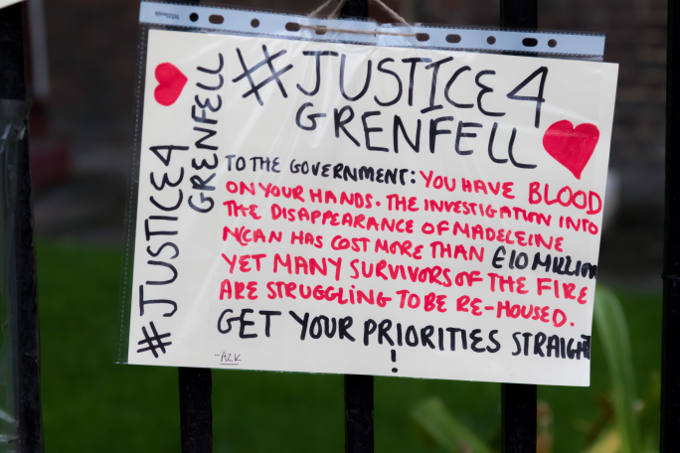 #JUSTICE4
GRENFELL
#JUSTICE4
GRENFELL
TO THE GOVERNMENT: YOU HAVE BLOOD
ON YOUR HANDS. THE INVESTIGATION INTO
THE DISAPPEARANCE OF MADELEINE
NCAN HAS COST MORE THAN £10 MILLION
YET MANY SURVIVORS OF THE FIRE
ARE STRUGGLING TO BE RE-HOUSED.
GET YOUR PRIORITIES STRAIGHT
!
-AZK